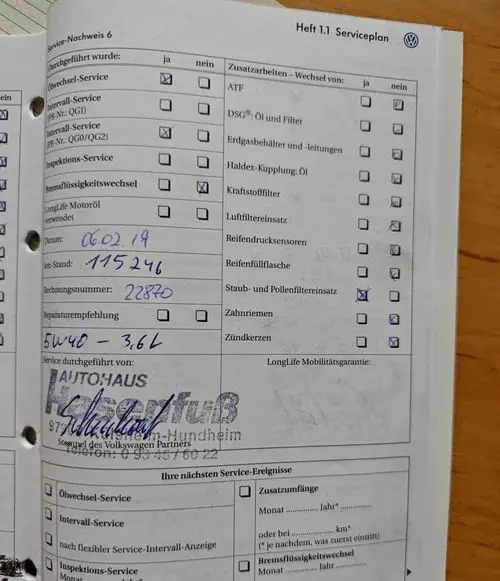 Service-Nachweis 6
Heft 1.1 Serviceplan
Durchgeführt wurde: ja nein
Ölwechsel-Service
Intervall-Service
(PR-Nr.: QG1)
Intervall-Service
(PR-Nr.: QG0/QG2)
Inspektions-Service
Bremsflüssigkeitswechsel
LongLife Motoröl
verwendet
Datum: 06.02.19
km-Stand: 115246
Rechnungsnummer: 22870
Reparaturempfehlung
5W40 - 3,6L
Service durchgeführt von:
AUTOHAUS
Hasenfuß
Hundheim
Stempel des Volkswagen Partners
Telefon: 0 93 45/60 22
Zusatzarbeiten – Wechsel von: ja nein
ATF
DSG®: Öl und Filter
Erdgasbehälter und -leitungen
Haldex-Kupplung: Öl
Kraftstofffilter
Luftfiltereinsatz
Reifendrucksensoren
Reifenfüllflasche
Staub- und Pollenfiltereinsatz
Zahnriemen
Zündkerzen
LongLife Mobilitätsgarantie:
Ihre nächsten Service-Ereignisse
Ölwechsel-Service
Intervall-Service
nach flexibler Service-Intervall-Anzeige
Inspektions-Service
Monat
Zusatzumfänge
Monat ................ Jahr* ................
oder bei ................ km*
(* je nachdem, was zuerst eintritt)
Bremsflüssigkeitswechsel
Monat ................ Jahr ................
nein